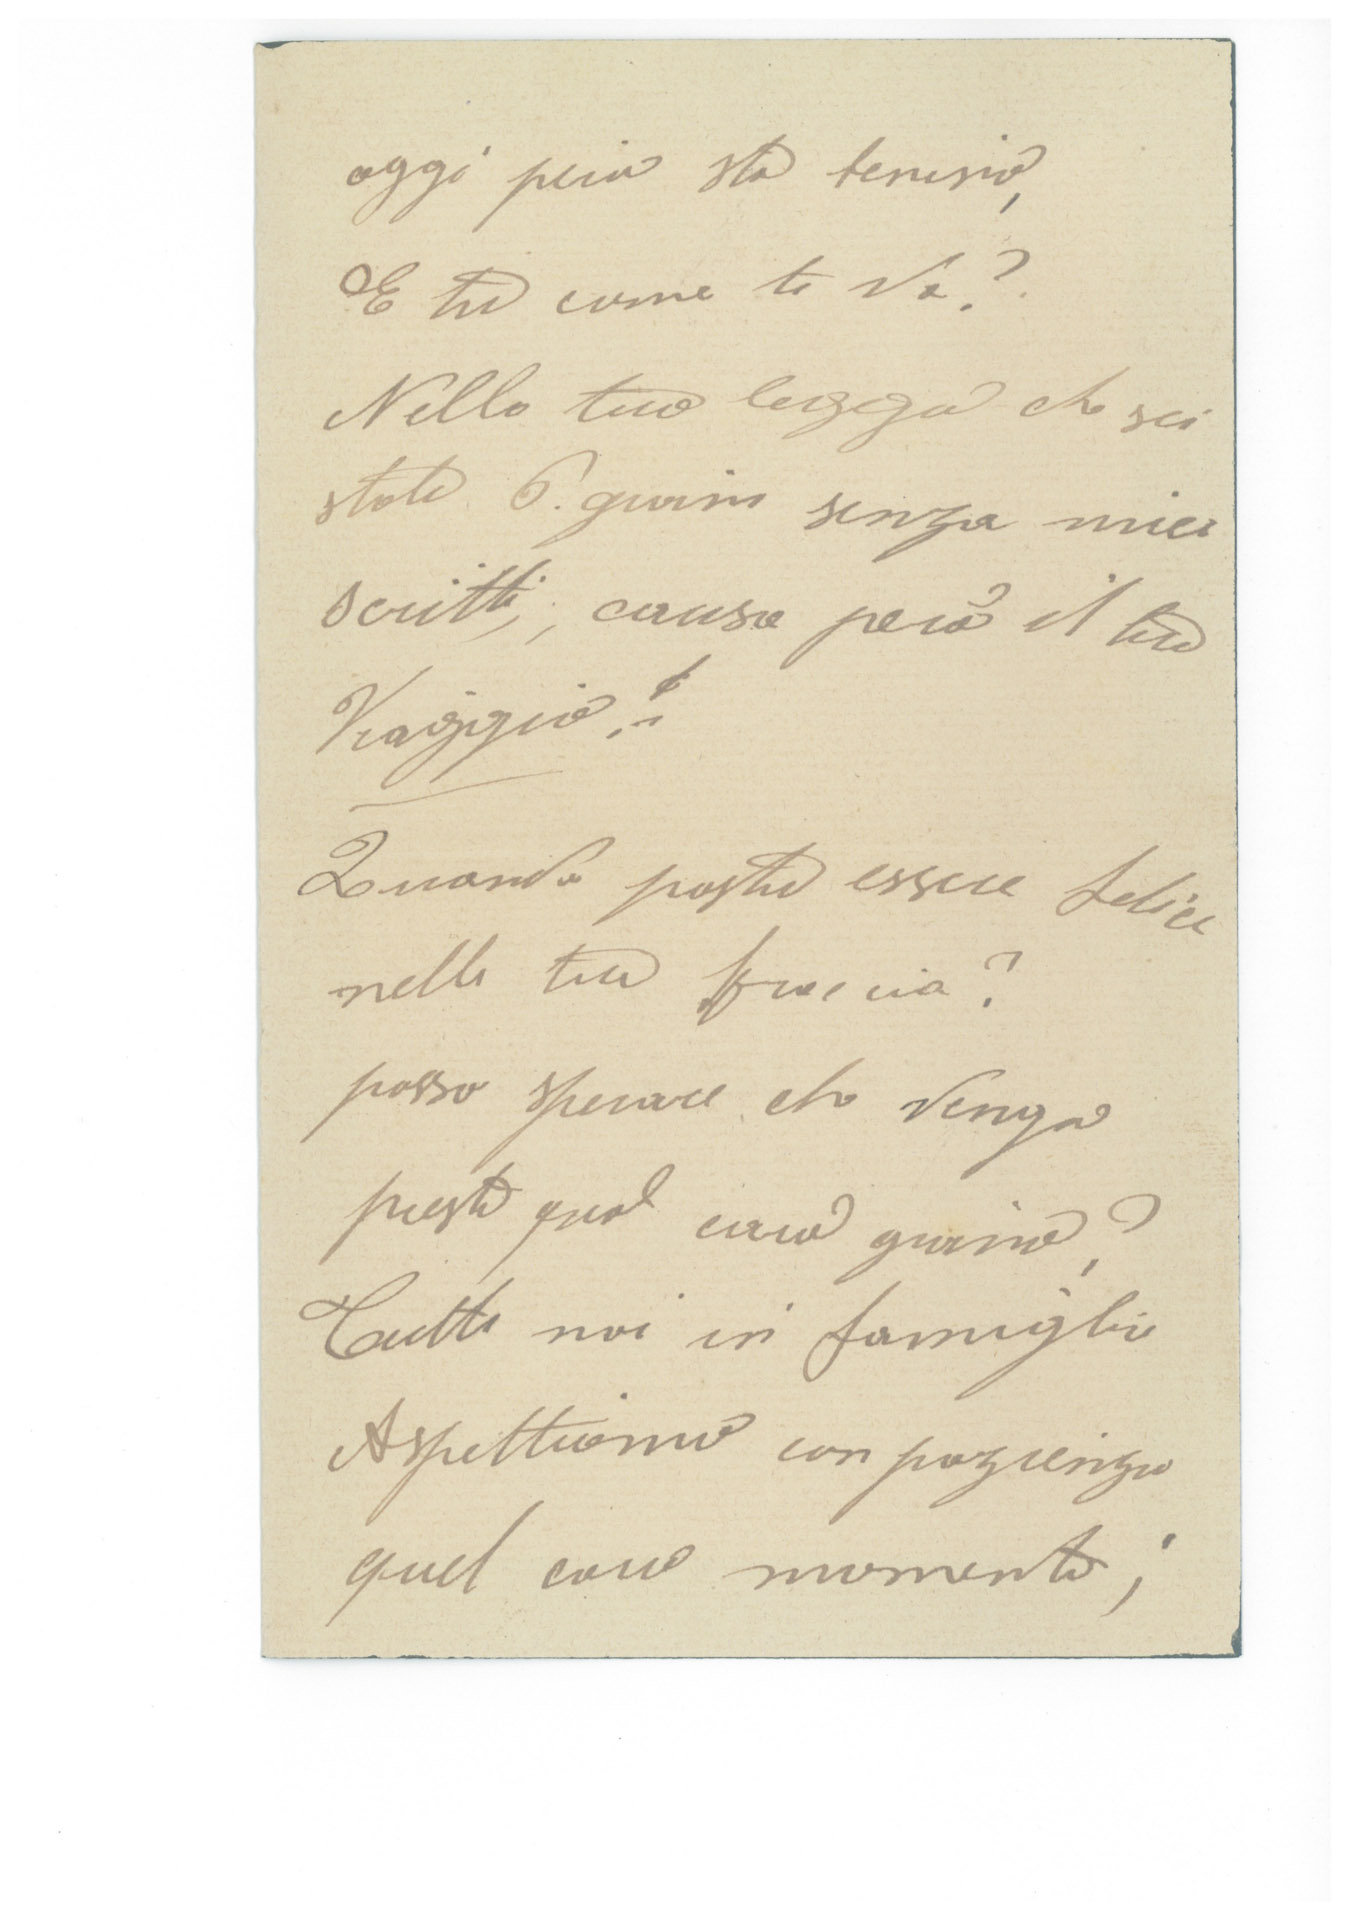 oggi però sto benino,
E tu come te va?
Nella tua leggo che sei
stato 6. giorni senza miei
scritti, causa però il tuo
Viaggio!
Quando posto essere felice
nelle tue braccia?
posso sperare che venga
presto quel caro giorno?
Tutti noi in famiglia
Aspettiamo con pazienza
quel caro momento;